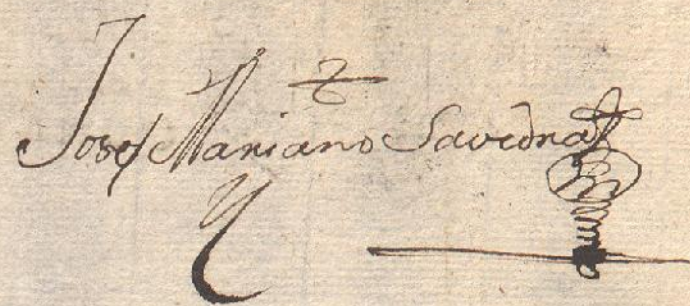 Josef Mariano Savedra